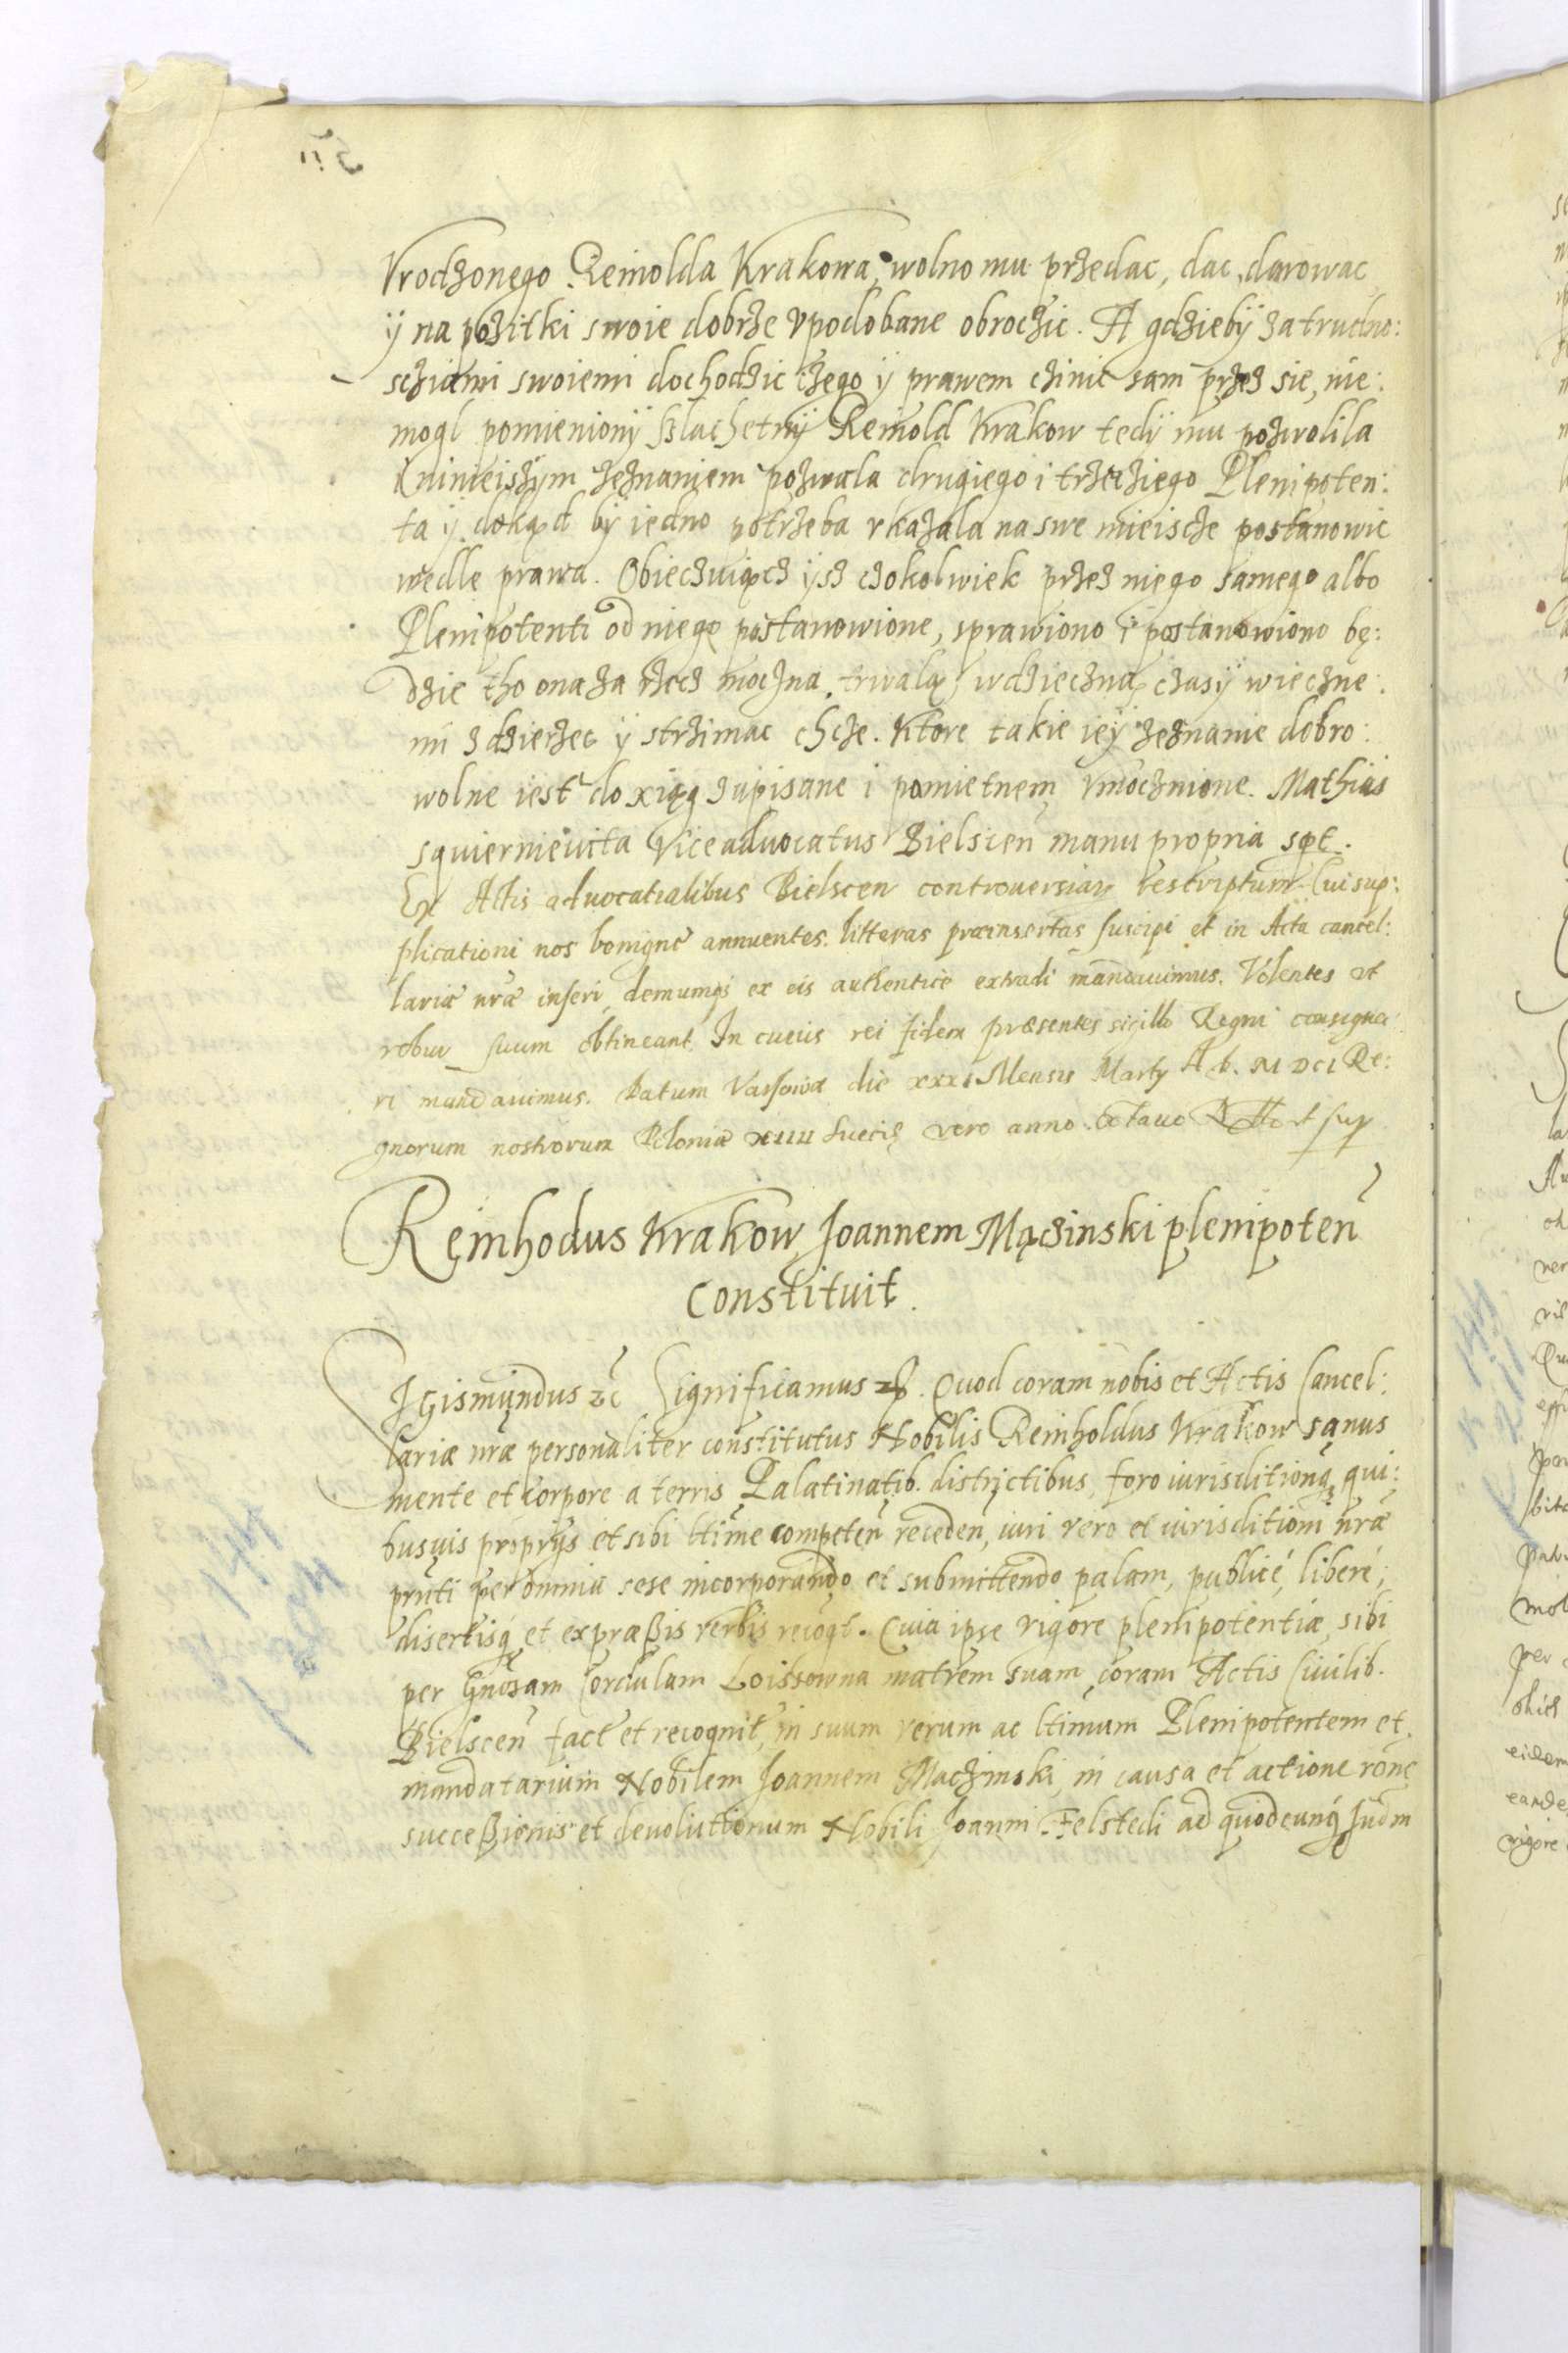 Vrodzonego Reinolda Krakowa, wolno mu przedac, dac, darowac
ÿ na pozitki swoie dobrze vpodobane obrodzic. A gdziebÿ za trudno:
schiami swoiemi dochodzic tzego ÿ prawem czinic sam przez sie, nie:
mogl pomienionÿ Szlachetnÿ Reinold Krakow tedÿ mu pozwolila
ÿ ninieiszÿm zeznaniem pozwala drugiego i trzecziego Plenipoten:
ta ÿ dokąd bÿ iedno potrzeba vkazala na swe mieiscze postanowic
wedle prawa. Obieczuiącz ÿsz czokolwiek przez niego samego albo
Plenipotenti od niego postanowione, sprawiono i postanowiono bę:
dzie tho ona za rzecz moczna, trwalą, wdzieczną czasÿ wieczne:
mi zdzierzec ÿ strzimac chcze. Ktore takie ieÿ zeznanie dobro:
wolne iest do xiąg zapisane i pamietnem vmocznione. Mathias
squiernieuita Viceaduocatus Bielscen̄ manu propria spt.
Ex Actis aduocatialibus Bielscen controuersiar̄ rescriptum. Cui sup:
plicationi nos benigne annuentes. litteras præinsertas suscipi et in Acta cancel:
lariæ nr̄æ inseri, demumqꝫ ex eis authentice extradi mandauimus. Volentes vt
robur suum obtineant. In cuius rei fidem præsentes sigillo Regni consigna
ri mandauimus. Datum Varsowiæ die xxxi Mensis Martÿ A. D. MDCI Re:
gnorum nostrorum Poloniæ xiiii Sueciæ vero anno Octauo
Reinhodus Krakow Joannem Mączinski plenipoten̄
constituit.
SIgismundus ꝛc̄ Significamus ꝛc̄. Quod coram nobis et Actis Cancel:
lariæ nr̄æ personaliter constitutus Nobilis Reinholdus Krakow sanus
mente et corpore a terris Palatinatib. districtibus, foro iurisditionqꝫ qui:
busuis proprÿs et sibi ltīme competen̄ receden̄, iuri vero et iurisditioni nr̄æ
prn̄ti per omnia sese incorporando et submittendo palam, publicé, liberé,
disertisqꝫ et expræßis verbis recogt. Quia ipse vigore plenipotentiæ, sibi
per Gn̄osam Cordulam Loissowna matrem suam coram Actis Ciuilib.
Bielscen̄ fact̄ et recognit̄, in suum verum ac ltīmum Plenipotentem et
mandatarium Nobilem Joannem Maczinski, in causa et actione rōne
succeßionis et deuolutionum Nobili Joanni Felstedi ad quodcunqꝫ Iud̄m